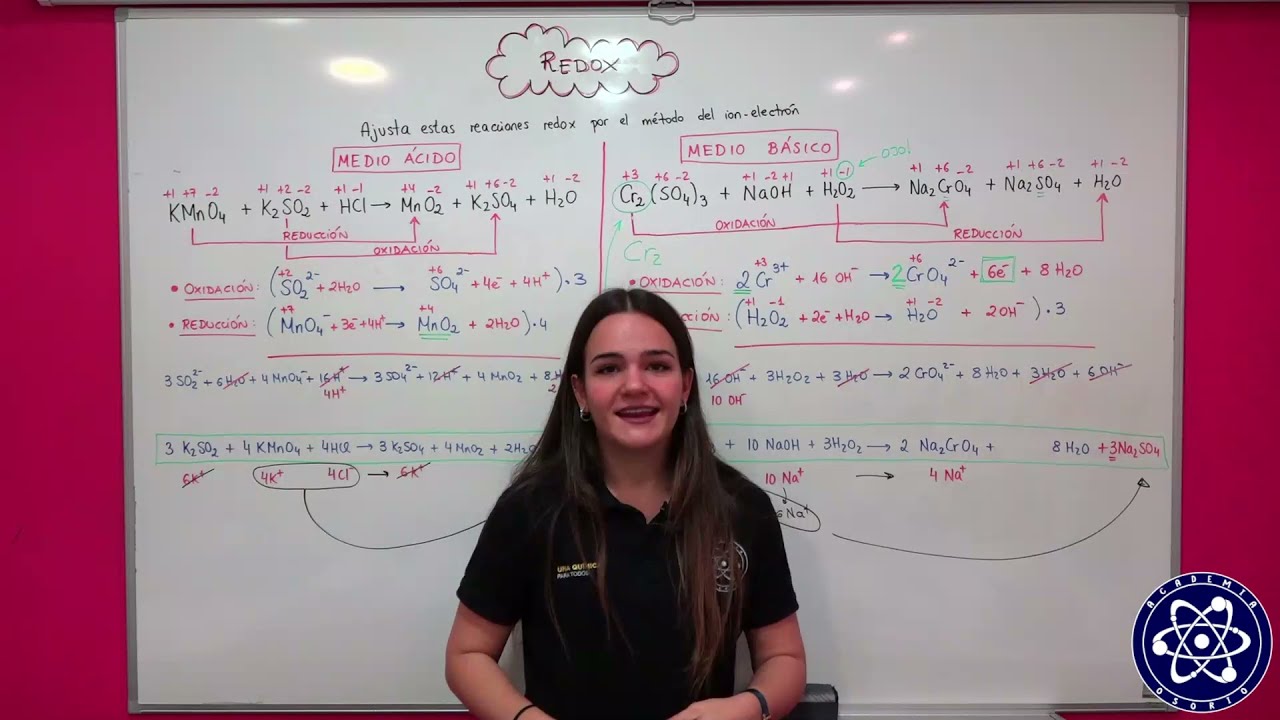 REDOX
Ajusta estas reacciones redox por el método del ion-electrón
MEDIO ÁCIDO
+1 +7 -2 +1 +2 -2 +1 -1 +4 -2 +1 +6 -2 +1 -2
KMnO4 + K2SO2 + HCl → MnO2 + K2SO4 + H2O
REDUCCIÓN
OXIDACIÓN
+2 +6
• OXIDACIÓN: (SO2^2- + 2H2O → SO4^2- + 4e- + 4H+)·3
+7 +4
• REDUCCIÓN: (MnO4- + 3e- + 4H+ → MnO2 + 2H2O)·4
3 SO2^2- + 6H2O + 4 MnO4- + 16H+ → 3 SO4^2- + 12H+ + 4 MnO2 + 8H
4H+ 2
3 K2SO2 + 4 KMnO4 + 4HCl → 3 K2SO4 + 4 MnO2 + 2H2O
6K+ 4K+ 4Cl- → 6K+
MEDIO BÁSICO
OJO!
+3 +6 -2 +1 -2 +1 +1 -1 +1 +6 -2 +1 +6 -2 +1 -2
Cr2(SO4)3 + NaOH + H2O2 → Na2CrO4 + Na2SO4 + H2O
OXIDACIÓN
REDUCCIÓN
Cr2
+3 +6
• OXIDACIÓN: 2Cr^3+ + 16 OH- → 2CrO4^2- + 6e- + 8 H2O
+1 -1 +1 -2
CCIÓN: (H2O2 + 2e- + H2O → H2O + 2OH-)·3
16 OH- + 3H2O2 + 3H2O → 2 CrO4^2- + 8 H2O + 3H2O + 6OH-
10 OH-
+ 10 NaOH + 3H2O2 → 2 Na2CrO4 + 8 H2O + 3Na2SO4
10 Na+ → 4 Na+
6 Na+
UNA QUÍMICA
PARA TODOS
ACADEMIA
OSORIO